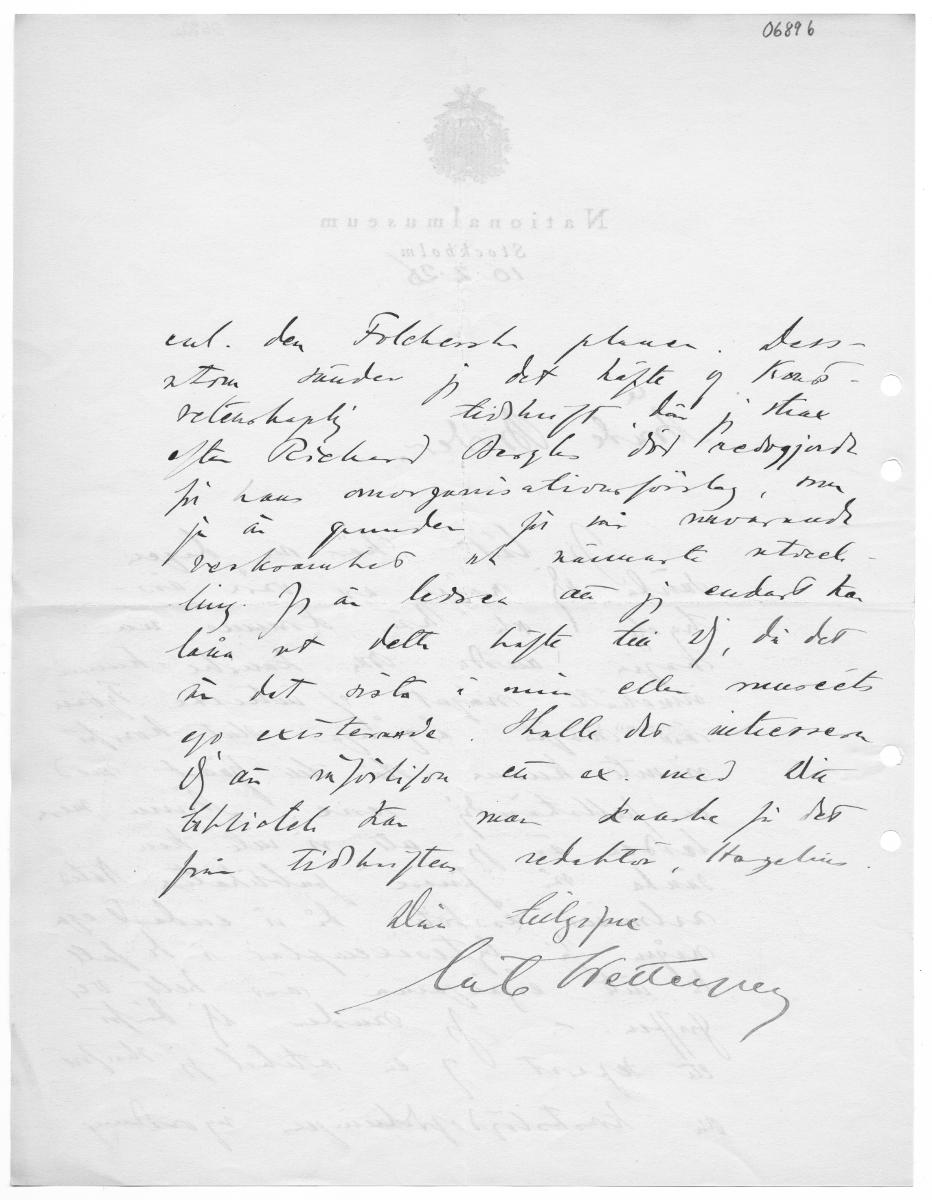 06896
enl. den Folckerska planen. Dess-
utom sänder jg det häfte af Konst-
vetenskaplig tidskrift, där jg strax
efter Richard Berghs död redogjorde
för hans omorganisationsförslag, som
ju är grunden för vår nuvarande
verksamhet och närmaste utveck-
ling. Jg är ledsen att jg endast kan
låna ut detta häfte till Dj, då det
är det sista i min eller museets
ego existerande. Skulle det intressera
Dj att införlifva ett ex. med Ditt
bibliotek kan man kanske få det
från tidskriftens redaktör, Hazelius.
Din tillgifne
Erik Wettergren